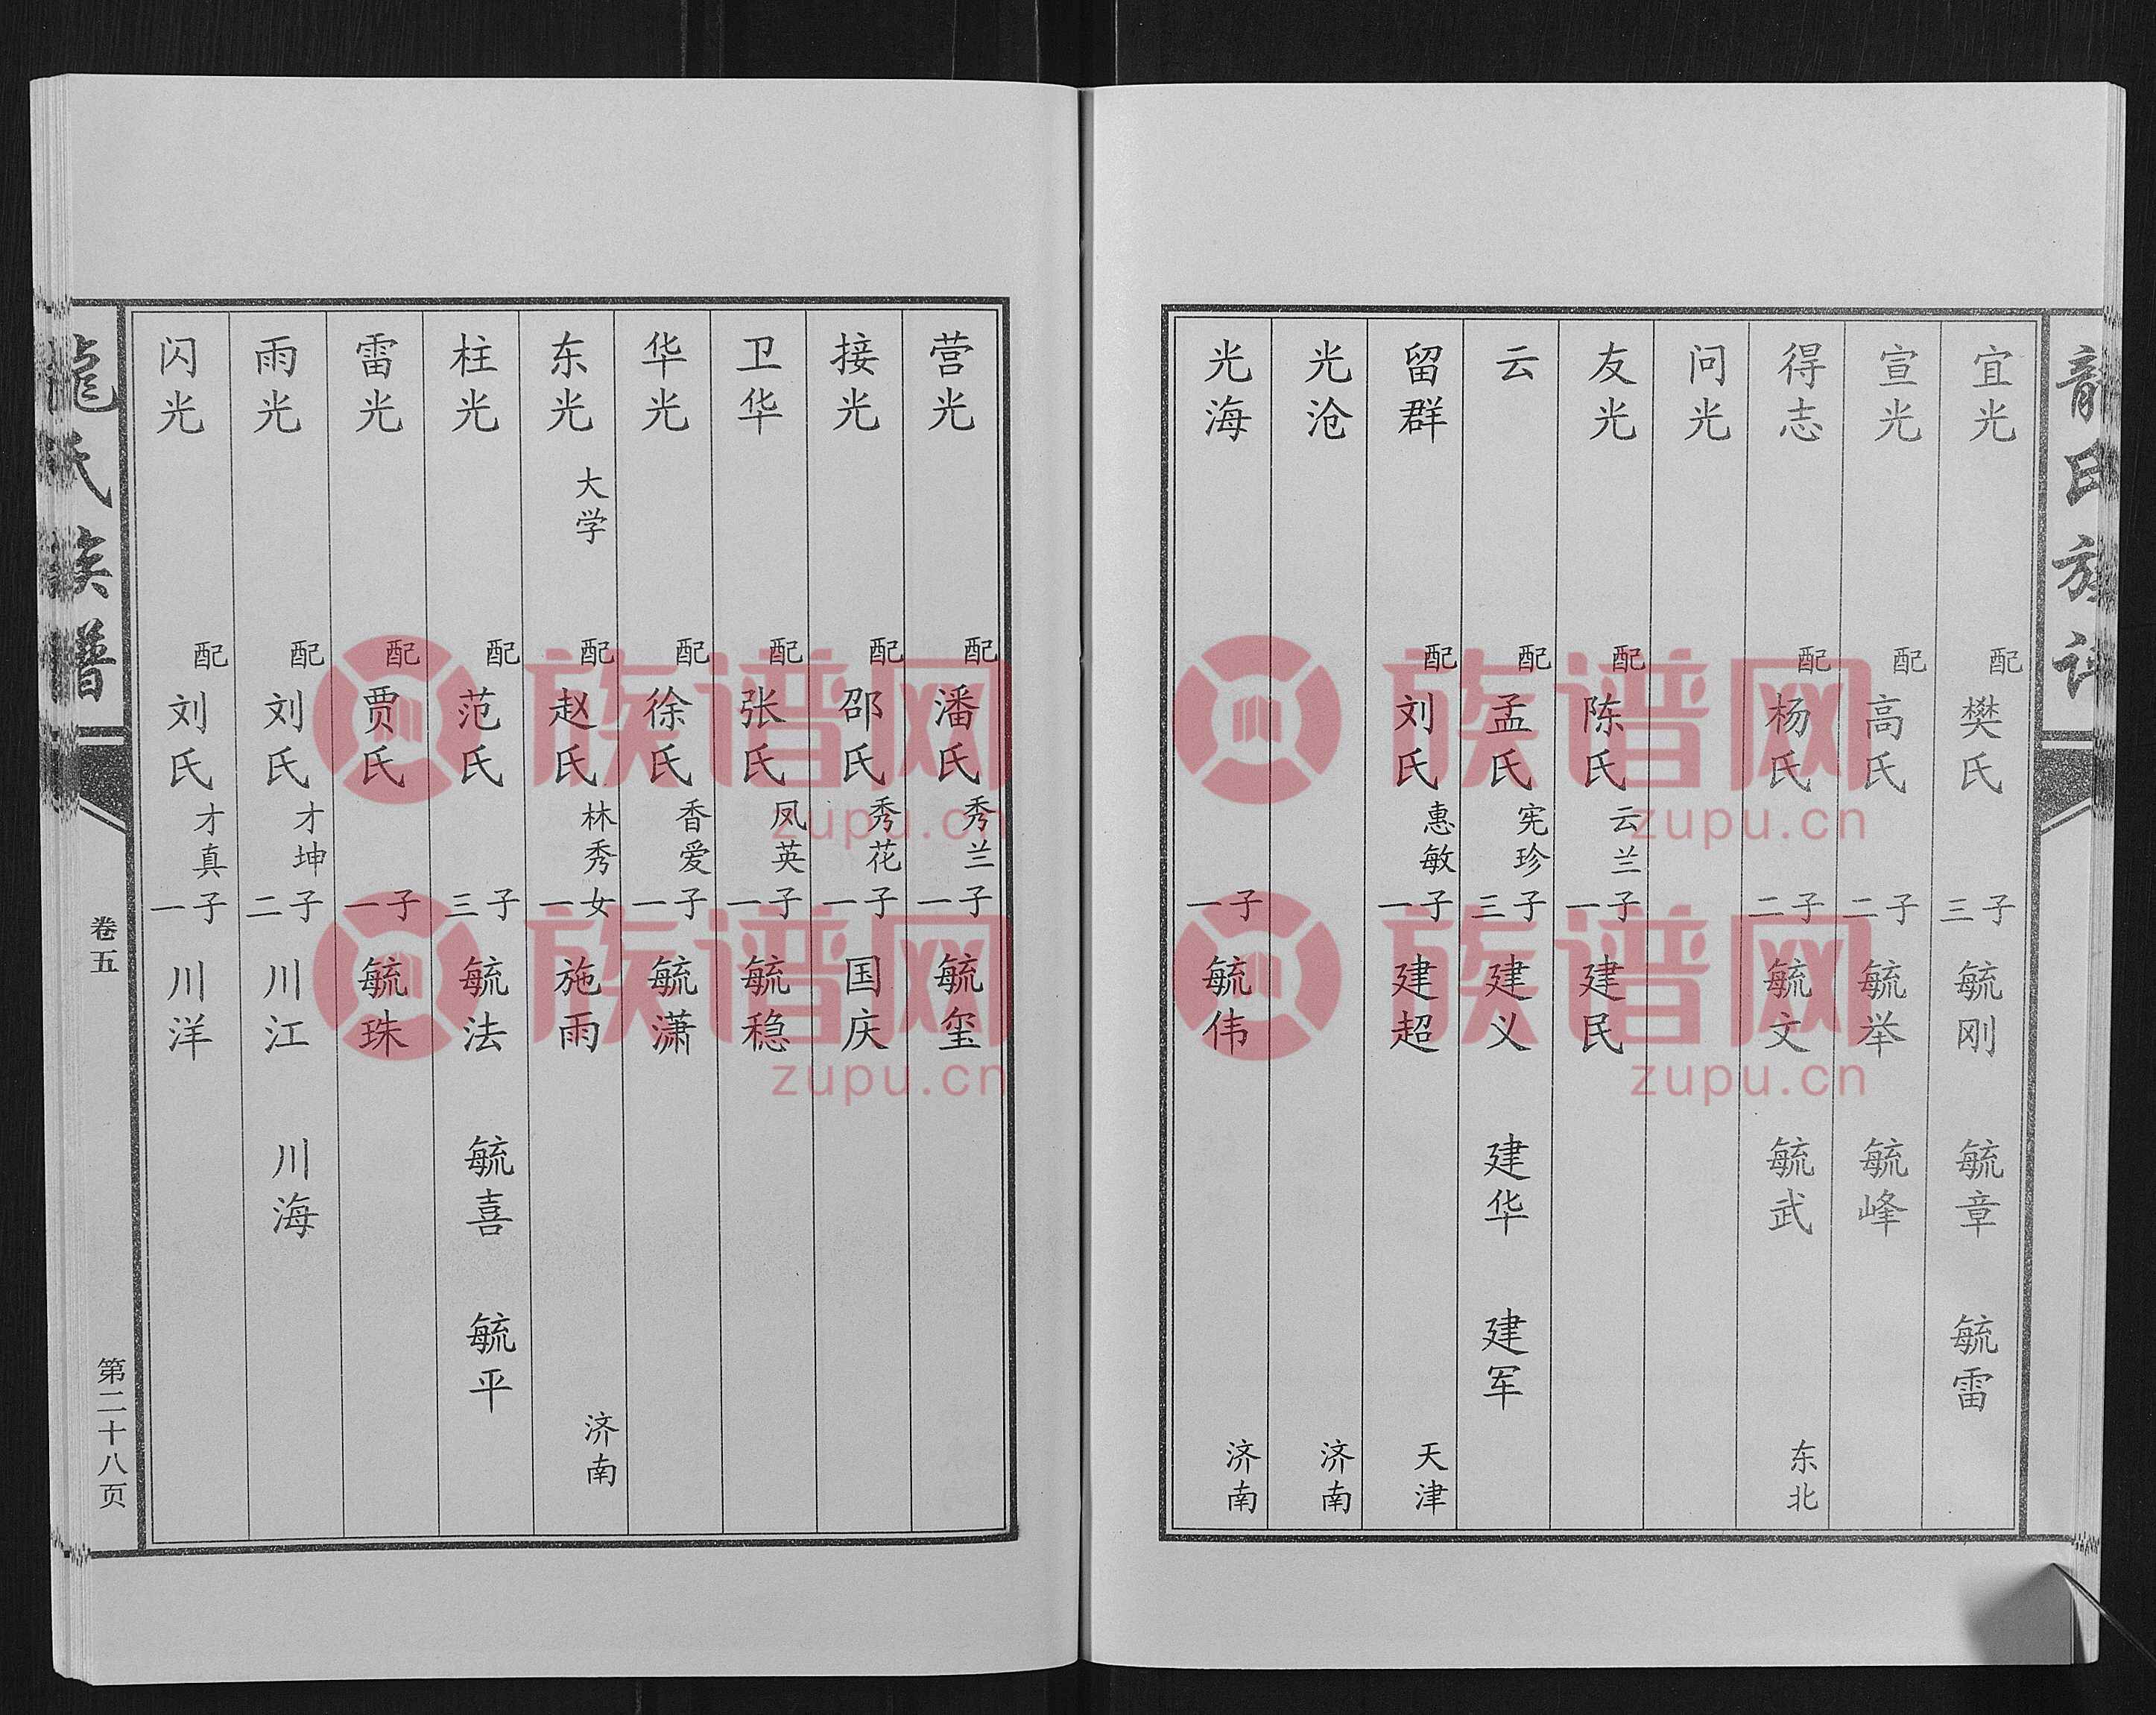 宜光 配 樊氏 三子 毓刚 毓章 毓雷
宣光 配 高氏 二子 毓举 毓峰
得志 配 杨氏 二子 毓文 毓武 东北
问光
友光 配 陈氏 云兰 一子 建民
云 配 孟氏 宪珍 三子 建义 建华 建军
留群 配 刘氏 惠敏 一子 建超 天津
光沧 济南
光海 一子 毓伟 济南
营光 配 潘氏 秀兰 一子 毓玺
接光 配 邵氏 秀花 一子 国庆
卫华 配 张氏 凤英 一子 毓稳
华光 配 徐氏 香爱 一子 毓潇
东光 大学 配 赵氏 林秀 一女 施雨 济南
柱光 配 范氏 三子 毓法 毓喜 毓平
雷光 配 贾氏 一子 毓珠
雨光 配 刘氏 才坤 二子 川江 川海
闪光 配 刘氏 才真 一子 川洋
龍氏族譜 卷五 第二十八页
族谱网
zupu.cn
族谱网
zupu.cn
族谱网
zupu.cn
族谱网
zupu.cn